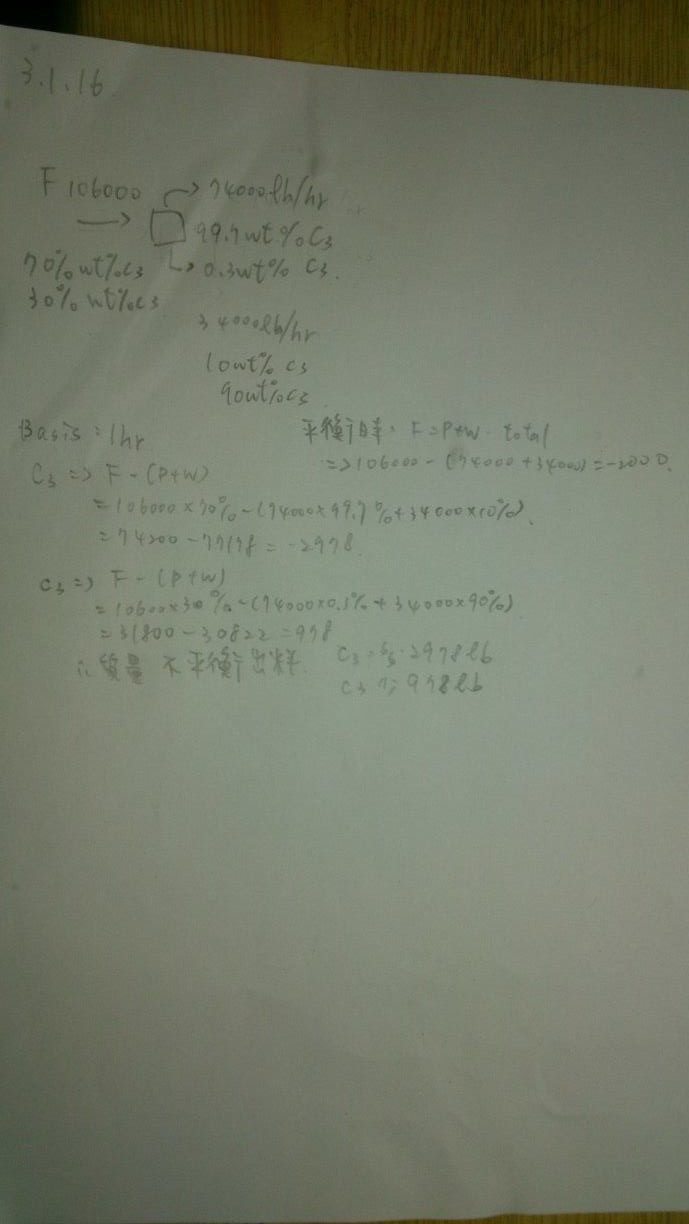 3.1.16
F 106000 → 74000 lb/hr
→ 99.7 wt% C3
70% wt% C3 → 0.3 wt% C3.
30% wt% C3
34000 lb/hr
10 wt% C3
90 wt% C3
Basis : 1hr 平衡時: F=P+W. total
=> 106000 - (74000 + 34000) = -2000.
C3 => F - (P+W)
= 106000 × 70% - (74000 × 99.7% + 34000 × 10%).
= 74200 - 77178 = -2978.
C3 => F - (P+W)
= 10600 × 30% - (74000 × 0.3% + 34000 × 90%)
= 31800 - 30822 = 978
∴ 質量 不平衡 出料. C3 2978 lb
C3 978 lb